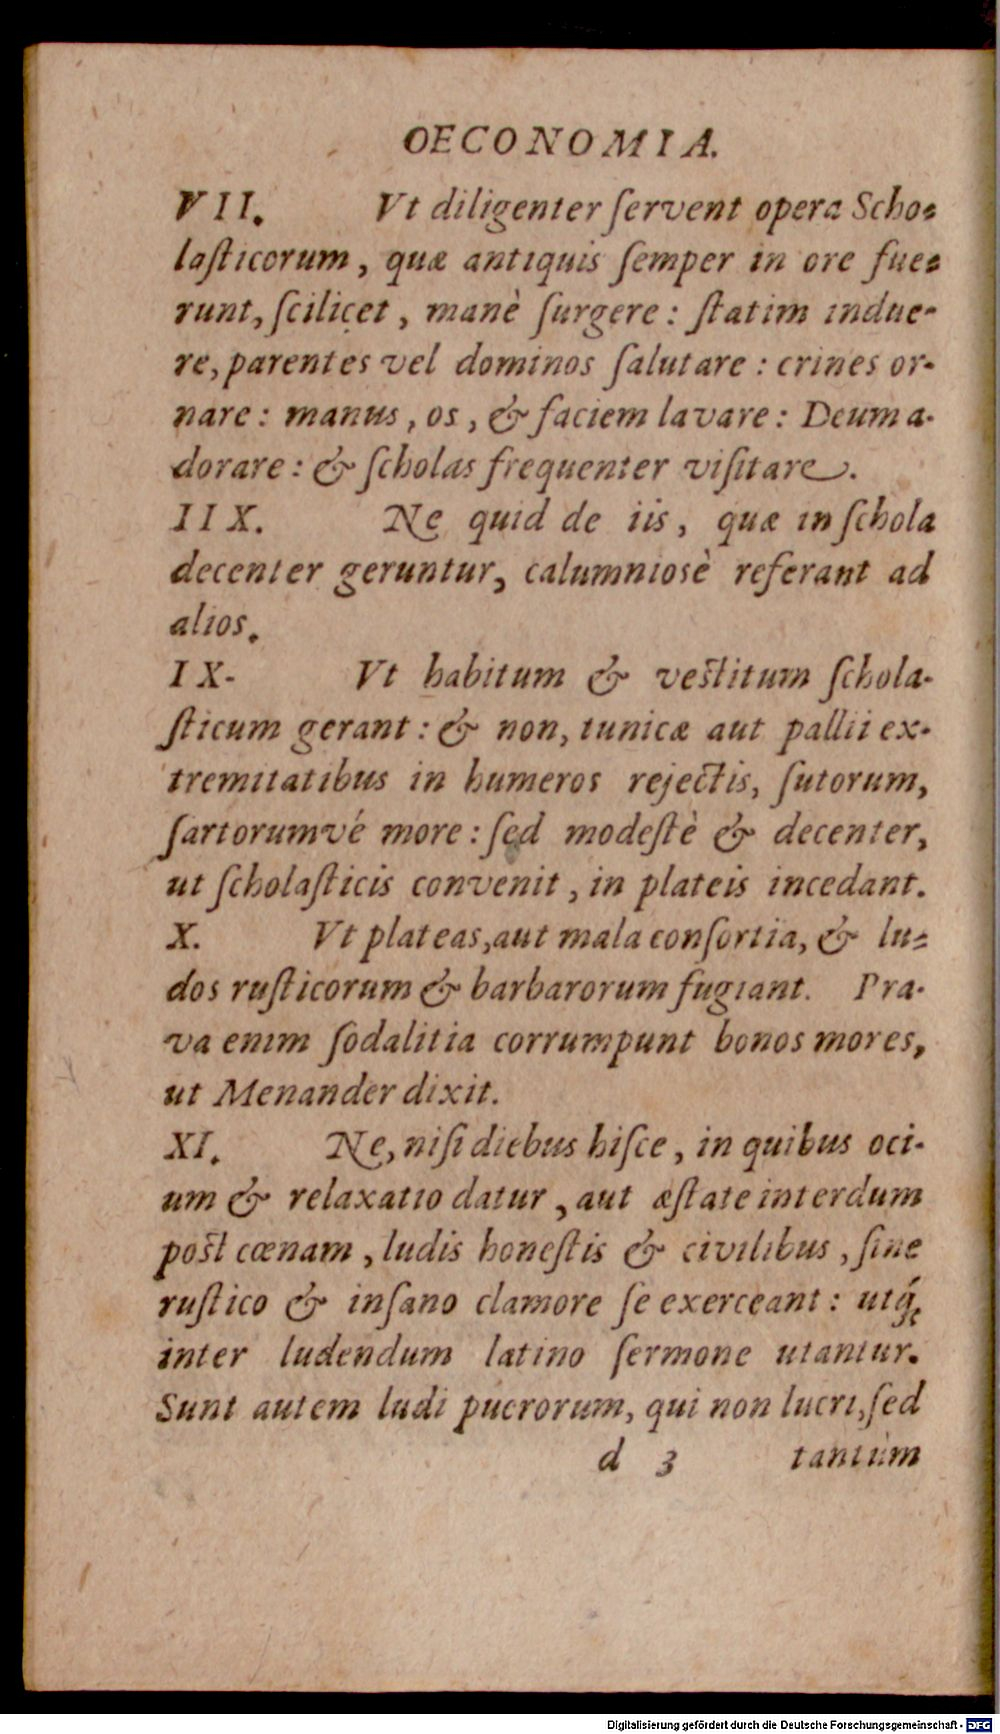 OECONOMIA.
VII. Vt diligenter ſervent opera Scho-
laſticorum, quæ antiquis ſemper in ore fue-
runt, ſcilicet, manè ſurgere: ſtatim indue-
re, parentes vel dominos ſalutare: crines or-
nare: manus, os, & faciem lavare: Deum a-
dorare: & ſcholas frequenter viſitare.
IIX. Ne quid de iis, quæ in ſchola
decenter geruntur, calumniosè referant ad
alios.
IX- Vt habitum & veſtitum ſchola-
ſticum gerant: & non, tunicæ aut pallii ex-
tremitatibus in humeros rejectis, ſutorum,
ſartorumvé more: ſed modeſtè & decenter,
ut ſcholaſticis convenit, in plateis incedant.
X. Vt plateas, aut mala conſortia, & lu-
dos ruſticorum & barbarorum fugiant. Pra-
va enim ſodalitia corrumpunt bonos mores,
ut Menander dixit.
XI. Ne, niſi diebus hiſce, in quibus oci-
um & relaxatio datur, aut æſtate interdum
poſt cœnam, ludis honeſtis & civilibus, ſine
ruſtico & inſano clamore ſe exerceant: utq́;
inter ludendum latino ſermone utantur.
Sunt autem ludi puerorum, qui non lucri, ſed
d 3 tantùm
Digitalisierung gefördert durch die Deutsche Forschungsgemeinschaft - DFG